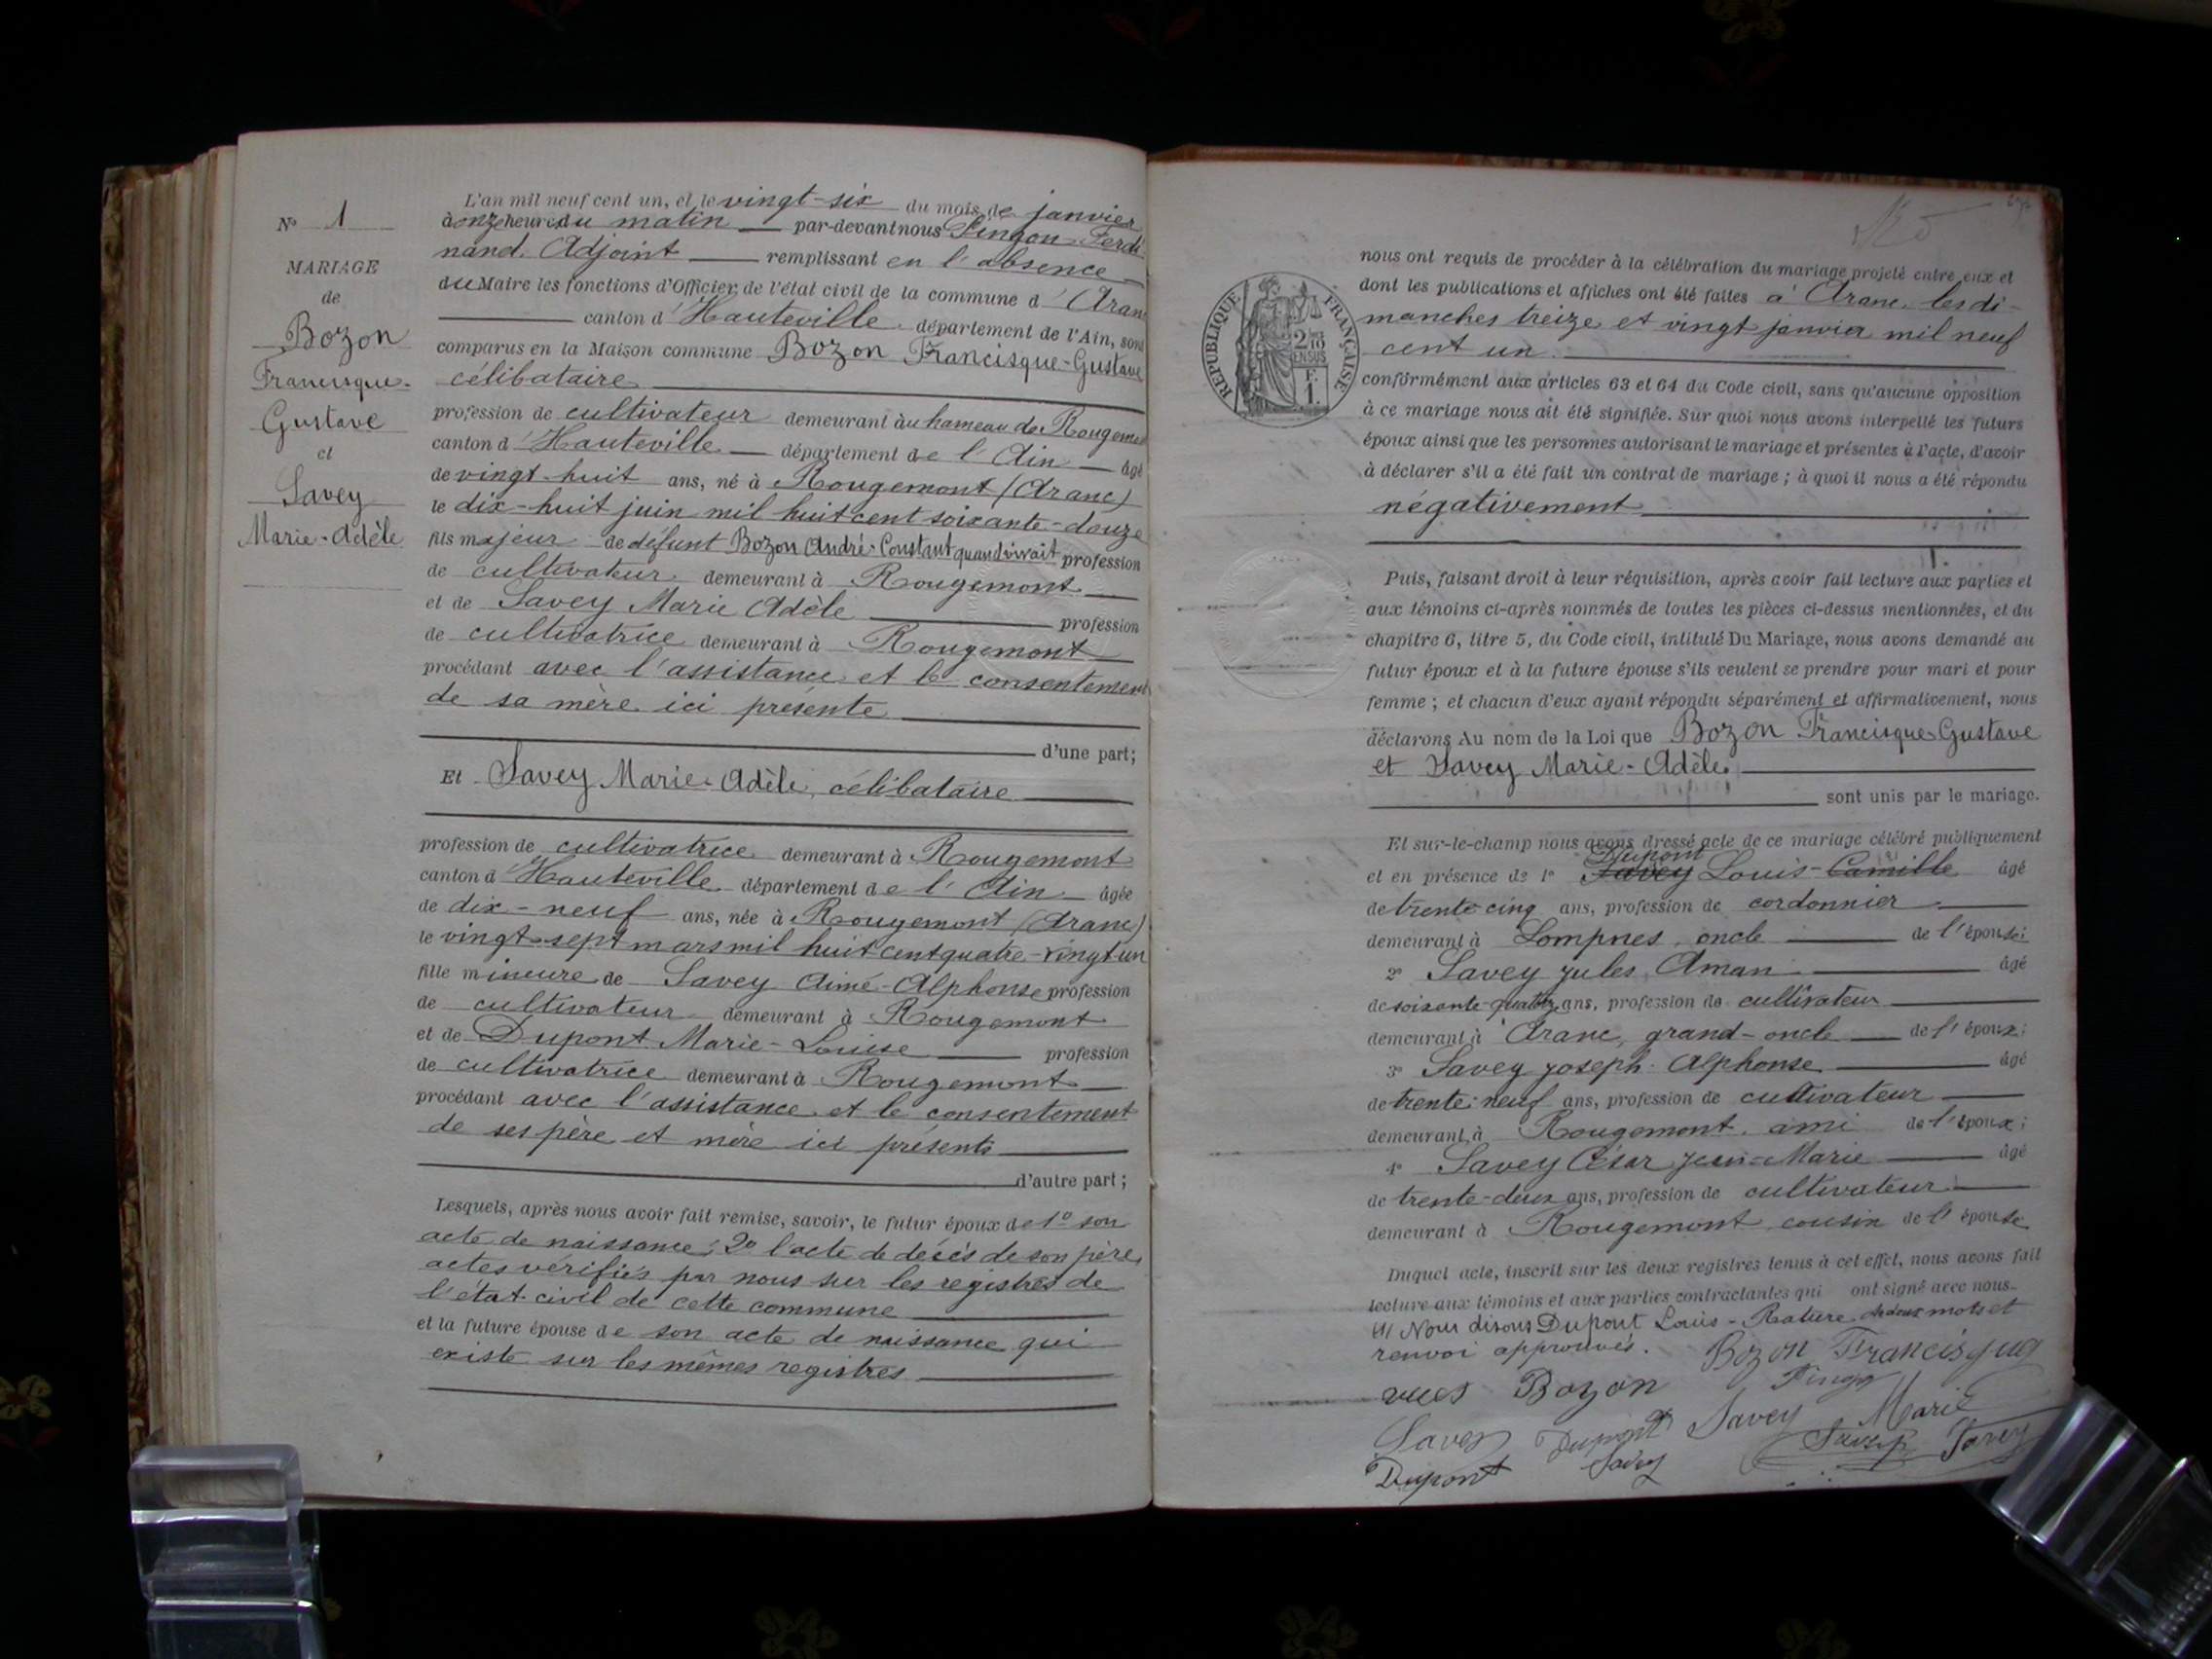 N° 1
MARIAGE
de
Bozon
Francisque-
Gustave
et
Savey
Marie-Adèle
L'an mil neuf cent un, et le vingt-six du mois de janvier
à onze heures du matin par-devant nous Pingon Ferdi
nand, Adjoint remplissant en l'absence
du Maire les fonctions d'Officier de l'état civil de la commune d'Aranc
canton d'Hauteville, département de l'Ain, sont
comparus en la Maison commune Bozon Francisque-Gustave
célibataire
profession de cultivateur demeurant au hameau de Rougemont
canton d'Hauteville département de l'Ain âgé
de vingt-huit ans, né à Rougemont (Aranc)
le dix-huit juin mil huit cent soixante-douze
fils majeur de défunt Bozon André-Constant quand vivait profession
de cultivateur demeurant à Rougemont
et de Savey Marie Adèle profession
de cultivatrice demeurant à Rougemont
procédant avec l'assistance et le consentement
de sa mère ici présente
d'une part;
Et Savey Marie-Adèle, célibataire
profession de cultivatrice demeurant à Rougemont
canton d'Hauteville département de l'Ain âgée
de dix-neuf ans, née à Rougemont (Aranc)
le vingt-sept mars mil huit cent quatre-vingt-un
fille mineure de Savey Aimé-Alphonse profession
de cultivateur demeurant à Rougemont
et de Dupont Marie-Louise profession
de cultivatrice demeurant à Rougemont
procédant avec l'assistance et le consentement
de ses père et mère ici présents
d'autre part;
Lesquels, après nous avoir fait remise, savoir, le futur époux de 1° son
acte de naissance; 2° l'acte de décès de son père,
actes vérifiés par nous sur les registres de
l'état-civil de cette commune
et la future épouse de son acte de naissance qui
existe sur les mêmes registres
RÉPUBLIQUE FRANÇAISE
2/10 EN SUS
F. 1.
nous ont requis de procéder à la célébration du mariage projeté entre eux et
dont les publications et affiches ont été faites à Aranc, les di-
manches treize et vingt janvier mil neuf
cent un
conformément aux articles 63 et 64 du Code civil, sans qu'aucune opposition
à ce mariage nous ait été signifiée. Sur quoi nous avons interpellé les futurs
époux ainsi que les personnes autorisant le mariage et présentes à l'acte, d'avoir
à déclarer s'il a été fait un contrat de mariage; à quoi il nous a été répondu
négativement
Puis, faisant droit à leur réquisition, après avoir fait lecture aux parties et
aux témoins ci-après nommés de toutes les pièces ci-dessus mentionnées, et du
chapitre 6, titre 5, du Code civil, intitulé Du Mariage, nous avons demandé au
futur époux et à la future épouse s'ils veulent se prendre pour mari et pour
femme; et chacun d'eux ayant répondu séparément et affirmativement, nous
déclarons Au nom de la Loi que Bozon Francisque Gustave
et Savey Marie-Adèle
sont unis par le mariage.
Et sur-le-champ nous avons dressé acte de ce mariage célébré publiquement
Dupont
et en présence de 1° Savey Louis-Camille âgé
de trente cinq ans, profession de cordonnier
demeurant à Lompnes, oncle de l'épouse;
2° Savey Jules Aman âgé
de soixante-quatre ans, profession de cultivateur
demeurant à Aranc, grand-oncle de l'époux;
3° Savey Joseph-Alphonse âgé
de trente-neuf ans, profession de cultivateur
demeurant à Rougemont, ami de l'époux;
4° Savey César Jean-Marie âgé
de trente-deux ans, profession de cultivateur
demeurant à Rougemont cousin de l'épouse
Duquel acte, inscrit sur les deux registres tenus à cet effet, nous avons fait
lecture aux témoins et aux parties contractantes qui ont signé avec nous.
(1) Nous disons Dupont Louis-Rature de deux mots et
renvoi approuvés. Bozon Francisque
Bozon Pingon
Savey Dupont Savey Marie
Savey Savey
Dupont Savey